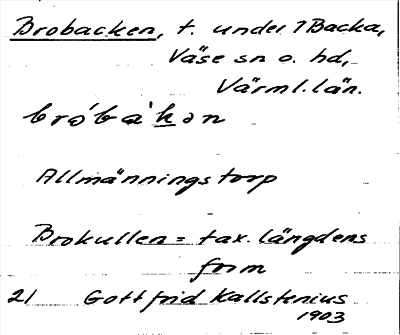 Brobacken, t. under 7 Backa,
Väse sn o. hd,
Värml. län.
bro´ba`kən
Allmänningstorp
Brokullen = tax. längdens
form
21 Gottfrid Kallstenius
1903